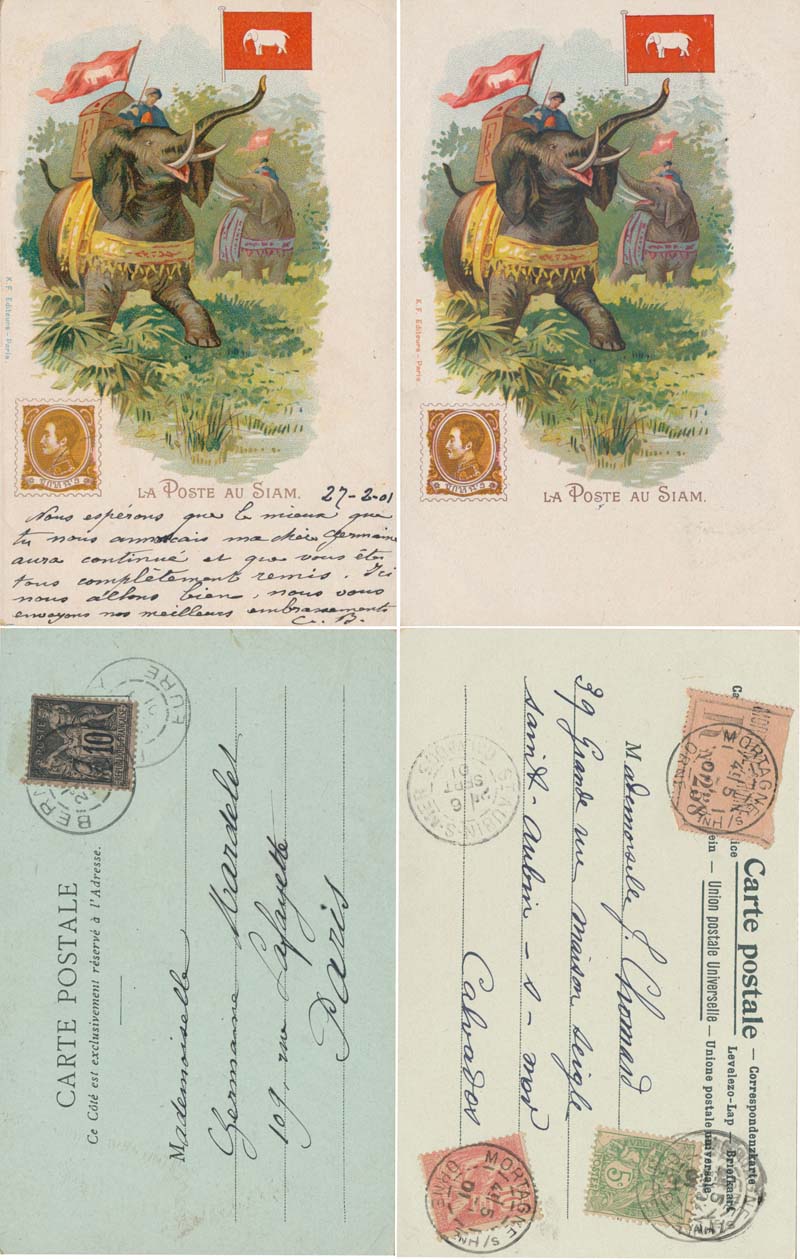 K.F. Editeurs - Paris.
LA POSTE AU SIAM.
27-2-01
Nous espérons que le mieux que
tu nous annoncais ma chère Germaine
aura continué et que vous êtes
tous complètement remis. Ici
nous allons bien, nous vous
envoyons nos meilleurs embrassements
K.F. Editeurs - Paris.
LA POSTE AU SIAM.
EURE
10
CARTE POSTALE
Ce Côté est exclusivement réservé à l'Adresse.
Mademoiselle
Germaine
109, rue Lafayette
Paris
Carte postale — Correspondenzkarte
Levelezo-Lap — Briefkaart
Union postale Universelle — Unione postale universale
Mademoiselle J. Chomard
39 Grande rue maison Seigle
Saint-Aubin-s-mer
Calvados
ST AUBIN-S-MER
CALVADOS
6
SEPT
01
MORTAGNE S/HNE
ORNE
5
POSTES
MORTAGNE S/HNE
ORNE